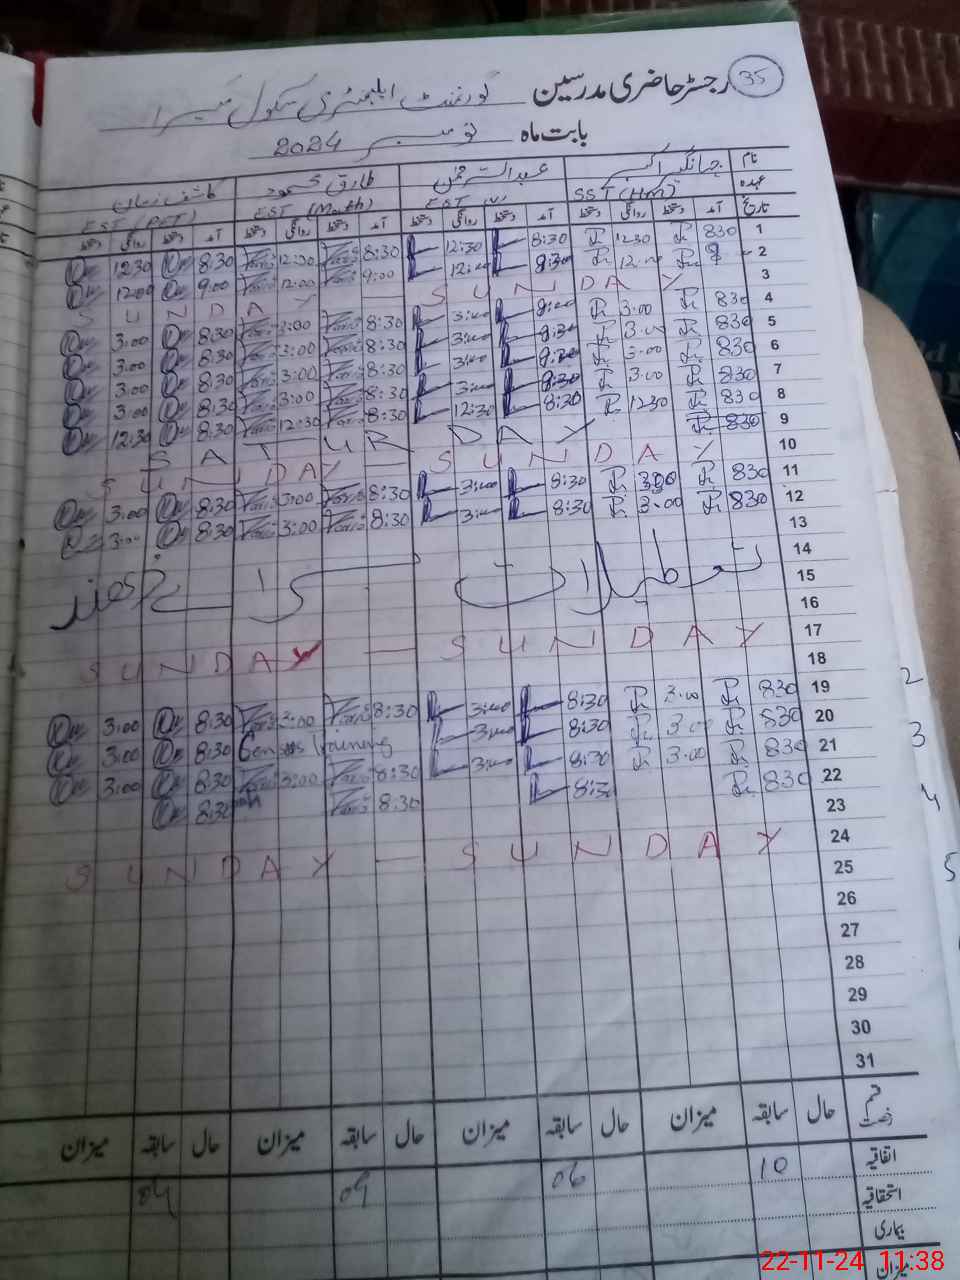 رجسٹر حاضری مدرسین گورنمنٹ ایلیمنٹری سکول میرا 35
بابت ماہ نومبر 2024
نام جہانگیر اکبر عبدالرحمٰن طارق محمود کاشف زمان
عہدہ SST (HM) EST EST (Math) EST (PET)
تاریخ آمد دستخط روانگی دستخط آمد دستخط روانگی دستخط آمد دستخط روانگی دستخط آمد دستخط روانگی دستخط
1 830 1230 8:30 12:30 8:30 12:00 8:30 1230
2 9 12:00 9:00 12:00 9:00 1200
3 SUNDAY — SUNDAY
4 830 3:00 3:00 8:30 3:00 8:30 3:00
5 830 3:00 8:30 3:00 8:30 3:00 8:30 3:00
6 830 3:00 3:00 8:30 3:00 8:30 3:00
7 830 3:00 8:30 3:00 8:30 3:00 8:30 3:00
8 830 1230 8:30 12:30 8:30 12:30 8:30 12:30
9 830 SATURDAY
10 SUNDAY — SUNDAY
11 830 300 8:30 3:00 8:30 3:00 8:30 3:00
12 830 3:00 8:30 3:00 8:30 3:00 8:30 3:00
13
14
15 تعطیلات
16
17 SUNDAY — SUNDAY
18
19 830 3:00 8:30 3:00 8:30 3:00 8:30 3:00
20 830 3:00 8:30 3:00 Census Training 8:30 3:00
21 830 3:00 8:30 3:00 8:30 3:00 8:30 3:00
22 830 8:30 8:30 8:30
23
24 SUNDAY — SUNDAY
25
26
27
28
29
30
31
قسم رخصت حال سابقہ میزان حال سابقہ میزان حال سابقہ میزان حال سابقہ میزان
اتفاقیہ 10 06 09 04
استحقاقیہ
بیماری
میزان
2
3
4
5
22-11-24 11:38